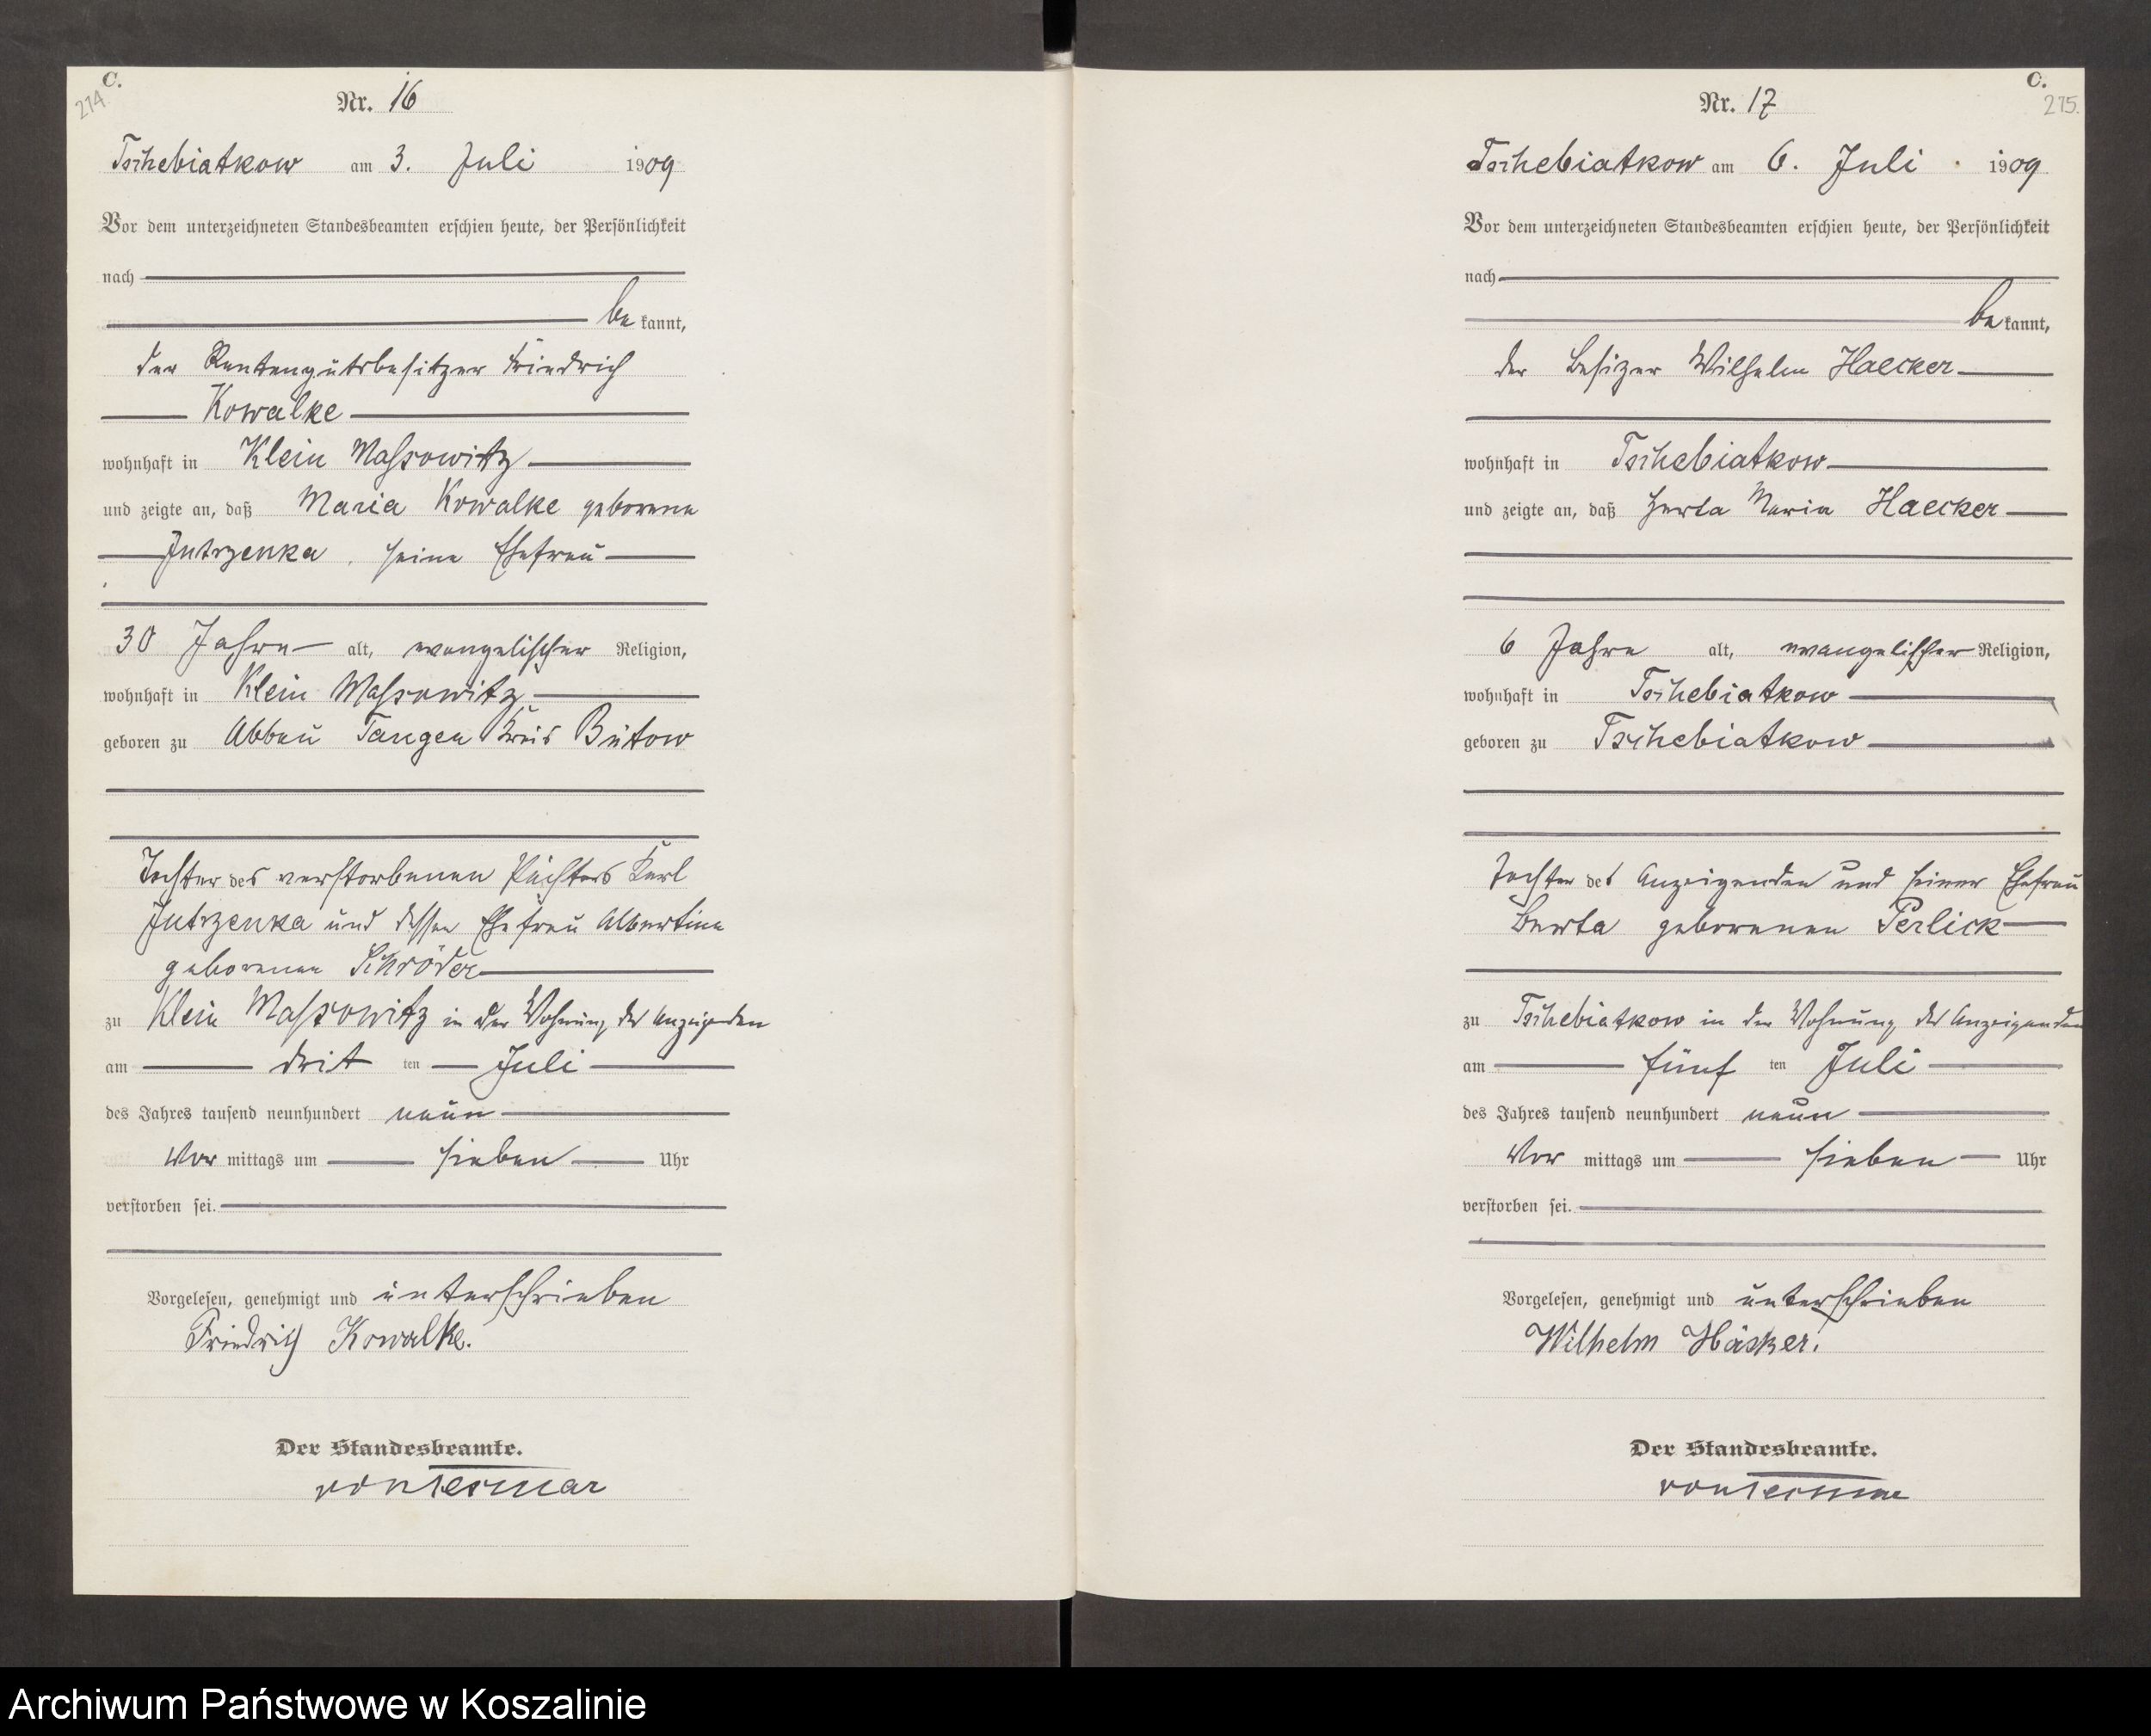 C.
214
Nr. 16
Tschebiatkow am 3. Juli 1909
Vor dem unterzeichneten Standesbeamten erschien heute, der Persönlichkeit
nach
be kannt,
der Rentengutsbesitzer Friedrich
Kowalke
wohnhaft in Klein Massowitz
und zeigte an, daß Maria Kowalke geborene
Jutrzenka, seine Ehefrau
30 Jahre alt, evangelischer Religion,
wohnhaft in Klein Massowitz
geboren zu Abbau Tangen Kreis Bütow
Tochter des verstorbenen Pächters Karl
Jutrzenka und dessen Ehefrau Albertine
geborenen Schröder
zu Klein Massowitz in der Wohnung des Anzeigenden
am drit ten Juli
des Jahres tausend neunhundert neun
Vor mittags um sieben Uhr
verstorben sei.
Vorgelesen, genehmigt und unterschrieben
Friedrich Kowalke.
Der Standesbeamte.
von Tesmar
C.
215.
Nr. 17
Tschebiatkow am 6. Juli 1909
Vor dem unterzeichneten Standesbeamten erschien heute, der Persönlichkeit
nach
be kannt,
der Besizer Wilhelm Haecker
wohnhaft in Tschebiatkow
und zeigte an, daß Herta Maria Haecker
6 Jahre alt, evangelischer Religion,
wohnhaft in Tschebiatkow
geboren zu Tschebiatkow
Tochter des Anzeigenden und seiner Ehefrau
Berta geborenen Perlick
zu Tschebiatkow in der Wohnung des Anzeigenden
am fünf ten Juli
des Jahres tausend neunhundert neun
Vor mittags um sieben Uhr
verstorben sei.
Vorgelesen, genehmigt und unterschrieben
Wilhelm Häcker.
Der Standesbeamte.
von Tesmar
Archiwum Państwowe w Koszalinie